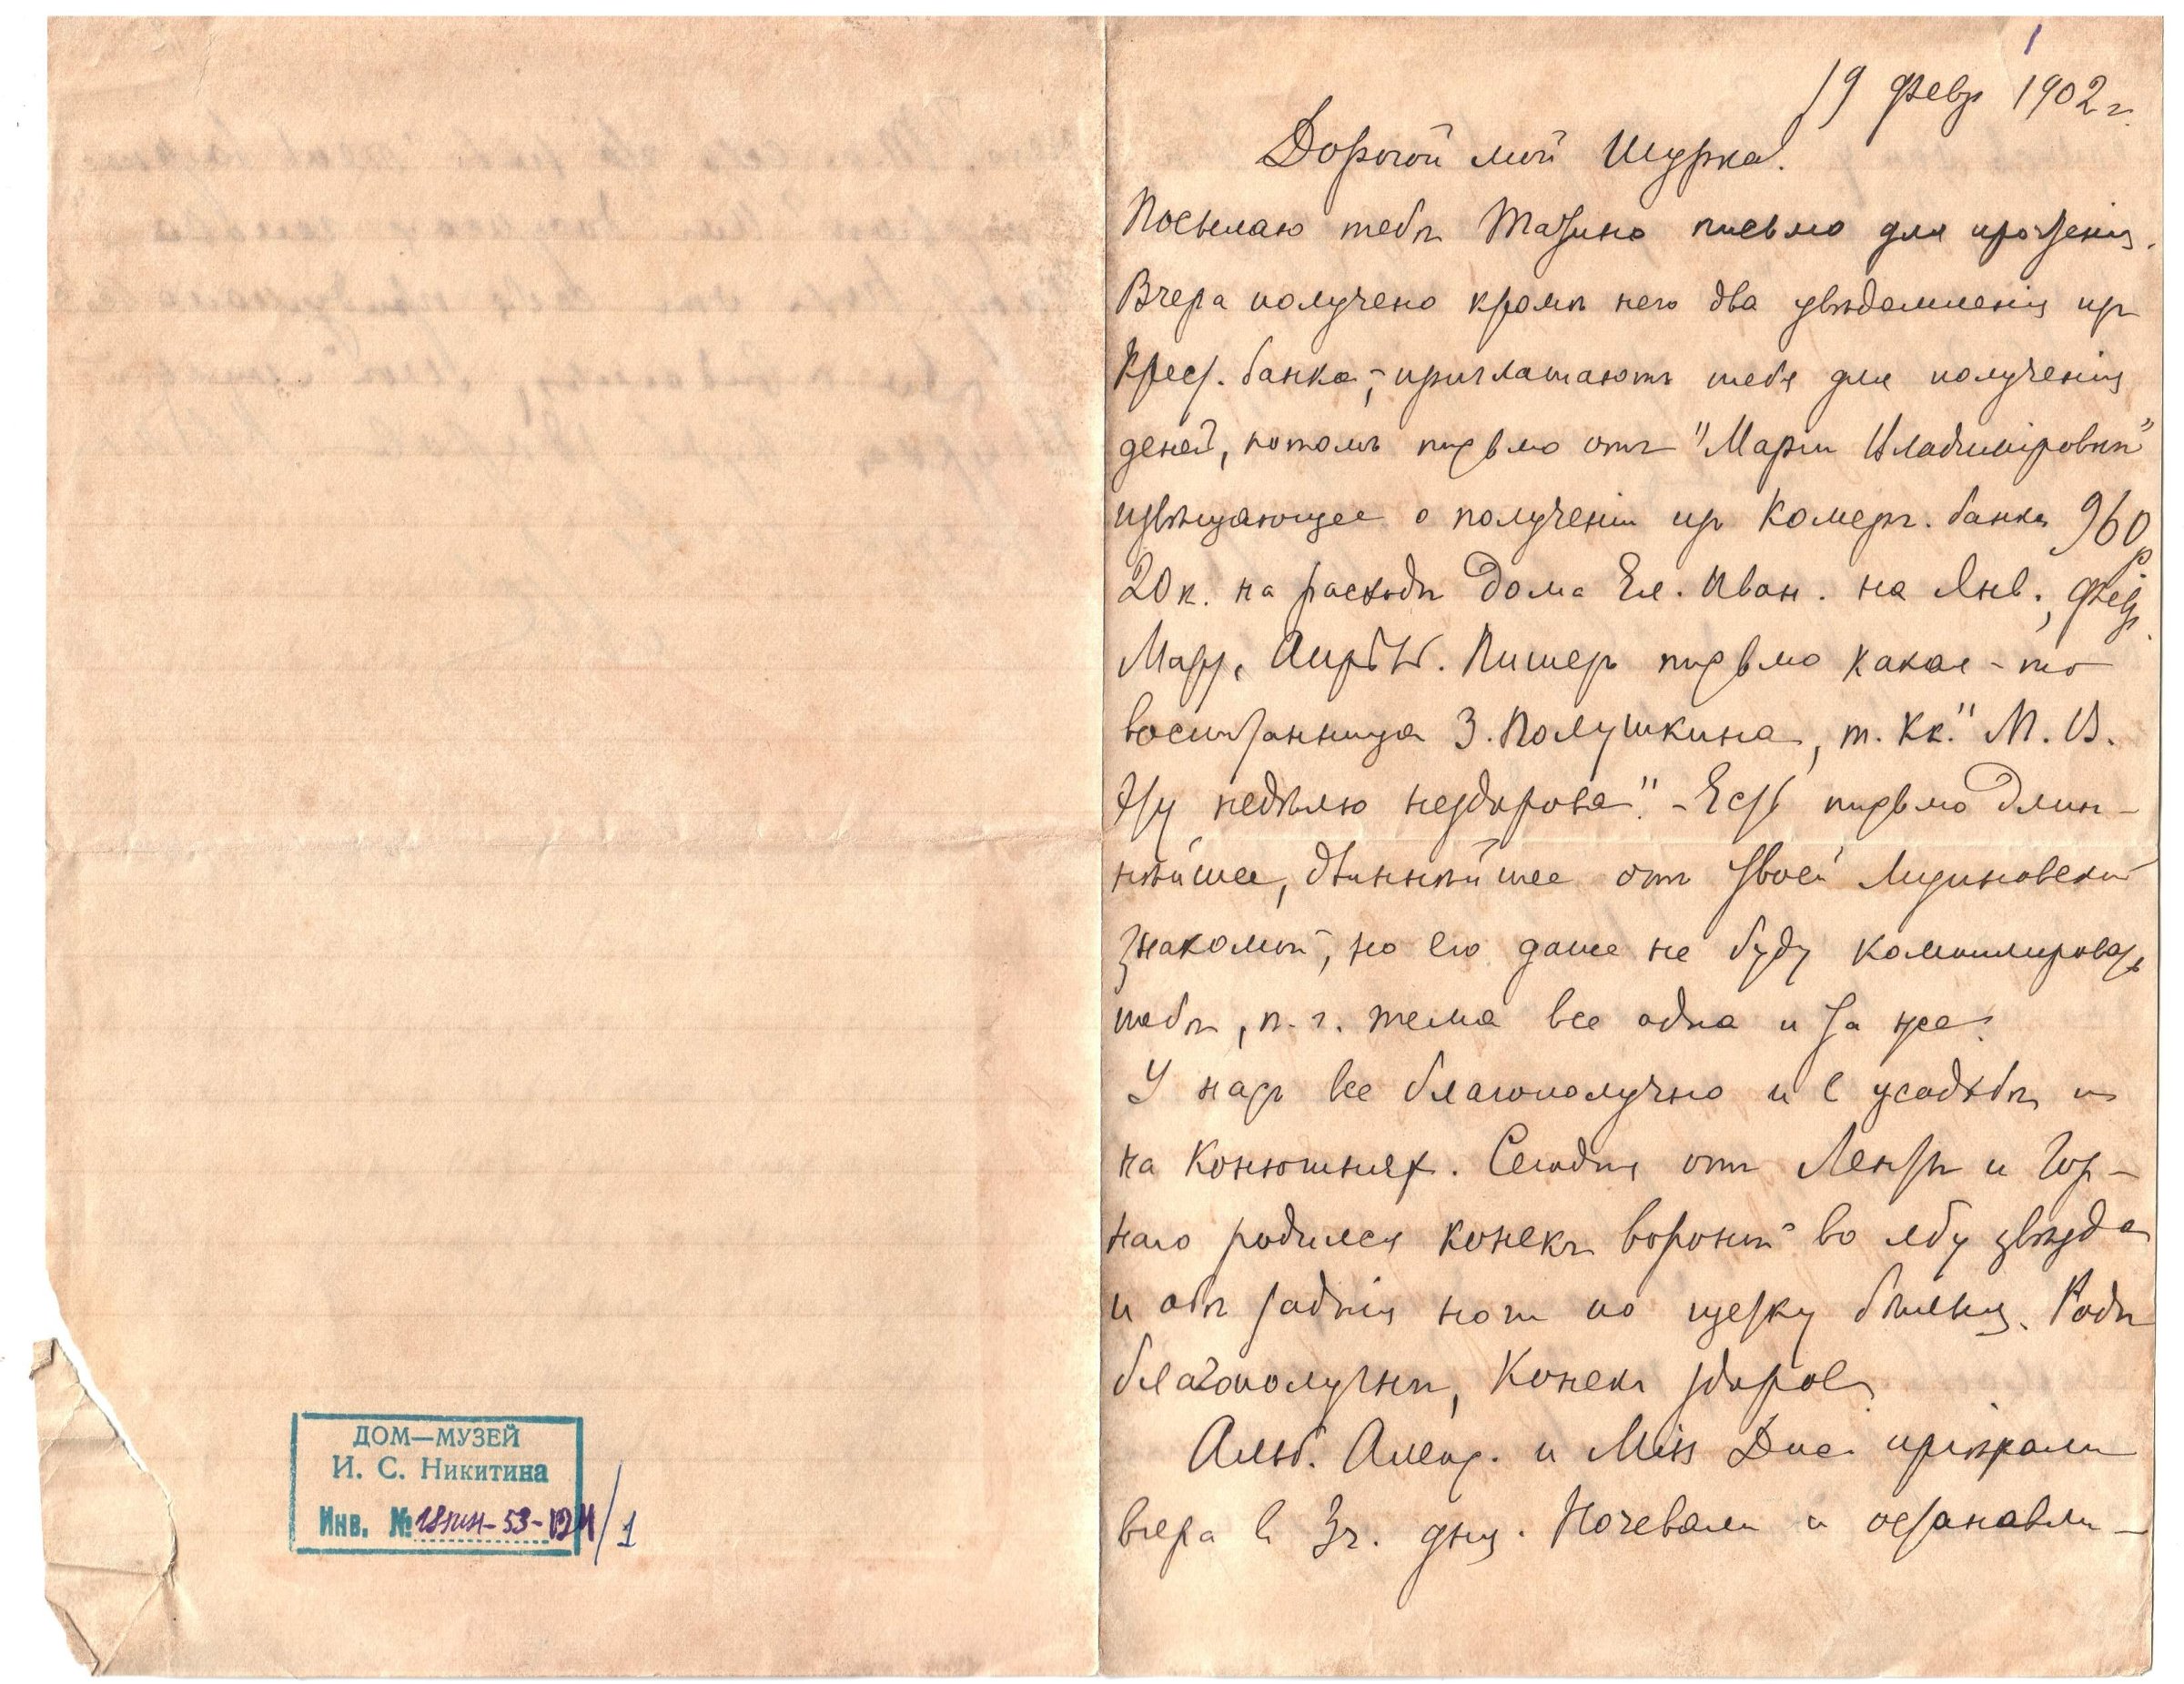 1
19 Февр 1902 г.
Дорогой мой Шурка!
Посылаю тебѣ Тазино письмо для прочтенія.
Вчера получено кромѣ него два увѣдомленія изъ
Крест. банка, – приглашаютъ тебя для полученія
денегъ, потомъ письмо отъ "Маріи Владиміровны"
извѣщающее о полученіи изъ Комерч. банка 960 р.
20 к. на расходы Дома Ел. Иван. на Янв., Февр.
Мартъ, Апрѣль. Пишетъ письмо какая-то
воспитанница З. Полушкина, т. к. "М. В.
эту недѣлю нездорова". – Есть письмо длин–
нѣйшее, длиннѣйшее отъ твоей
знакомой, но его даже не буду
тебѣ, п. ч. тема все одна и та же.
У насъ все благополучно и в усадьбѣ и
на Конюшняхъ. Сегодня отъ Ленты и Гор–
наго родился конекъ вороной во лбу звѣзда
и обѣ заднія ноги по щетку бѣлыя. Роды
благополучны, Конекъ здоровъ.
Альб. Алекс. и Miss Due пріѣхали
вчера в 3 ч. дня. Ночевали и останавли–
ДОМ—МУЗЕЙ
И. С. Никитина
Инв. №
/1